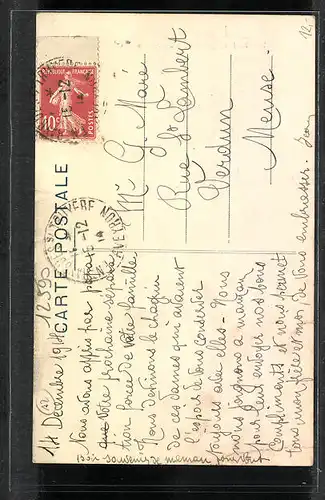 12.-
RÉPUBLIQUE FRANÇAISE
10c
POSTES
CARTE POSTALE
Mr G. Maré
Rue St Lambert
Verdun
Meuse
14 Décembre 1914
12590
Nous avons appris par
que votre prochaine sépara
tion forcée de votre famille
Nous devinons le chagrin
de ces dames qui avaient
l'espoir de vous conserver
toujours près elles. Nous
nous joignons à maman
pour leur envoyer nos bons
compliments et nous permet
tons mon frère et moi, de vous embrasser. Jean
souvenir de maman pour tout